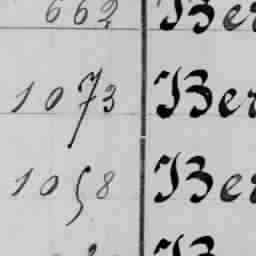 662 Ber
1073 Ber
1058 Ber